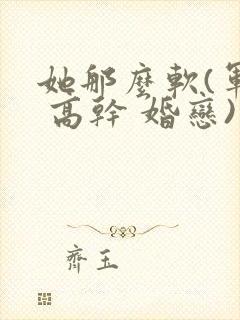 她那麼軟(軍
高幹 婚戀)
齊玉